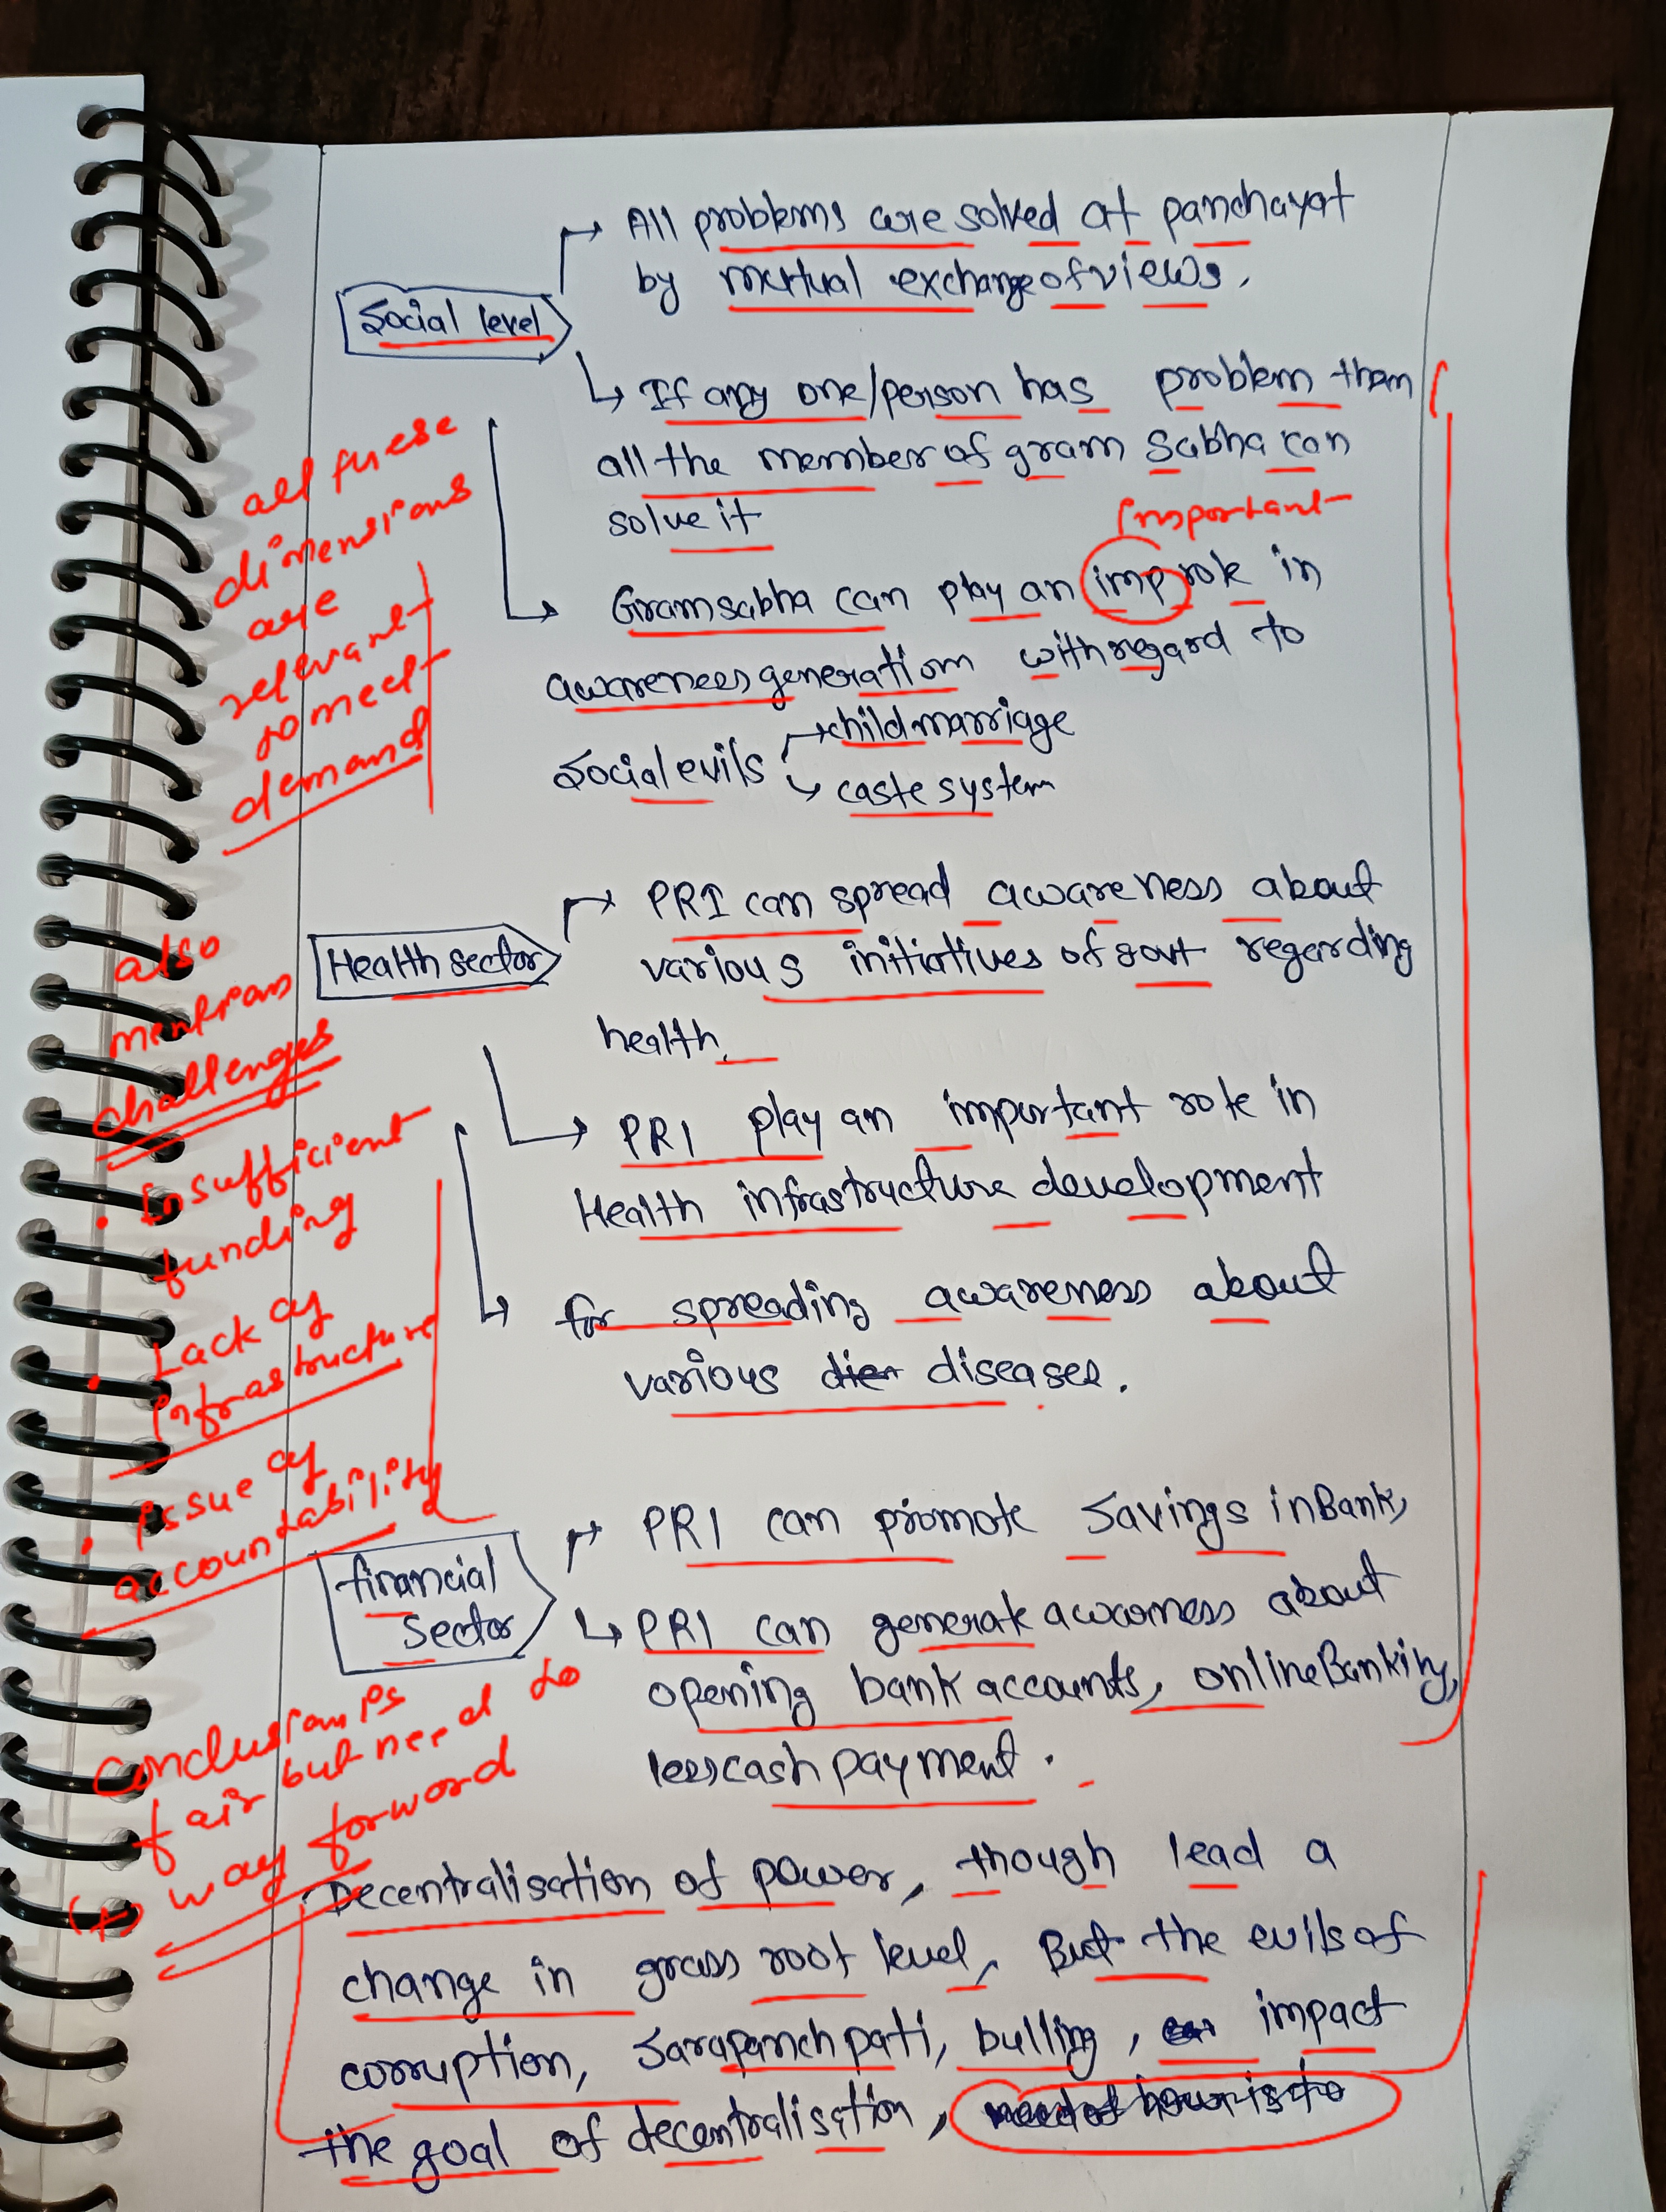 All problems are solved at panchayat
by mutual exchange of views.
Social level
If any one/person has problem then
all the member of gram sabha can
solve it
Important
Gram sabha can play an imp role in
awareness generation with regard to
Social evils
child marriage
caste system
all these
dimensions
are
relevant
to meet
demand
PRI can spread awareness about
Health sector
various initiatives of govt regarding
health.
PRI play an important role in
Health infrastructure development
for spreading awareness about
various diseases.
also
mention
challenges
Insufficient
funding
Lack of
infrastructure
issue of
accountability
PRI can promote Savings in Bank,
financial
Sector
PRI can generate awarness about
opening bank accounts, online Banking,
less cash payment.
Conclusion is
fair but need to
way forword
Decentralisation of power, though lead a
change in grass root level, But the evils of
corruption, Sarapanch pati, bulling, impact
the goal of decentralisation, need of hour is to